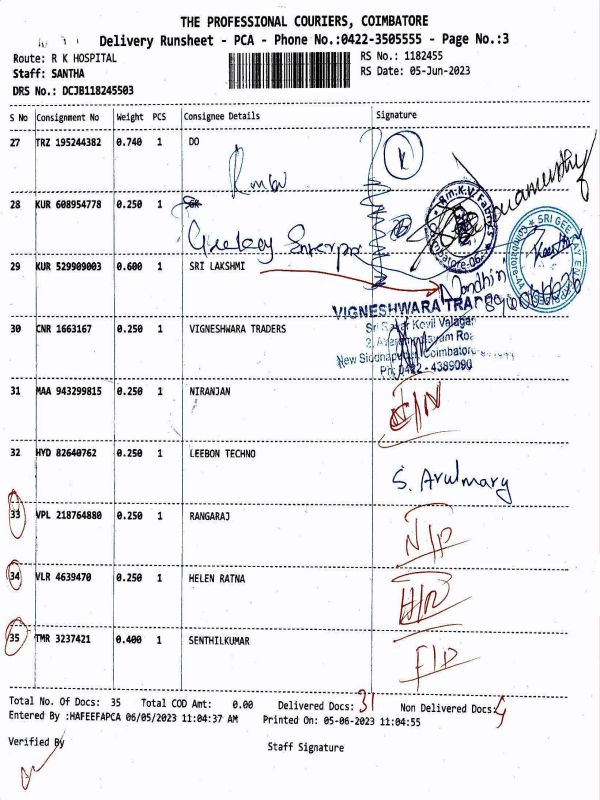 THE PROFESSIONAL COURIERS, COIMBATORE
Delivery Runsheet - PCA - Phone No.:0422-3505555 - Page No.:3
Route: R K HOSPITAL RS No.: 1182455
Staff: SANTHA RS Date: 05-Jun-2023
DRS No.: DCJB118245503
S No Consignment No Weight PCS Consignee Details Signature
27 TRZ 195244382 0.740 1 DO
K
Rm.K.V Fabrics
28 KUR 608954778 0.250 1
SRI GEE JAY EN
29 KUR 529909003 0.600 1 SRI LAKSHMI
Nandhini
VIGNESHWARA TRADERS
30 CNR 1663167 0.250 1 VIGNESHWARA TRADERS
Kovil
New Coimbatore
Ph: 0422 - 4389090
31 MAA 943299815 0.250 1 NIRANJAN
32 HYD 82640762 0.250 1 LEEBON TECHNO
S. Arulmary
33 VPL 218764880 0.250 1 RANGARAJ
N/P
34 VLR 4639470 0.250 1 HELEN RATNA
35 TMR 3237421 0.400 1 SENTHILKUMAR
Total No. Of Docs: 35 Total COD Amt: 0.00 Delivered Docs: 31 Non Delivered Docs: 4
Entered By :HAFEEFAPCA 06/05/2023 11:04:37 AM Printed On: 05-06-2023 11:04:55
Verified By Staff Signature